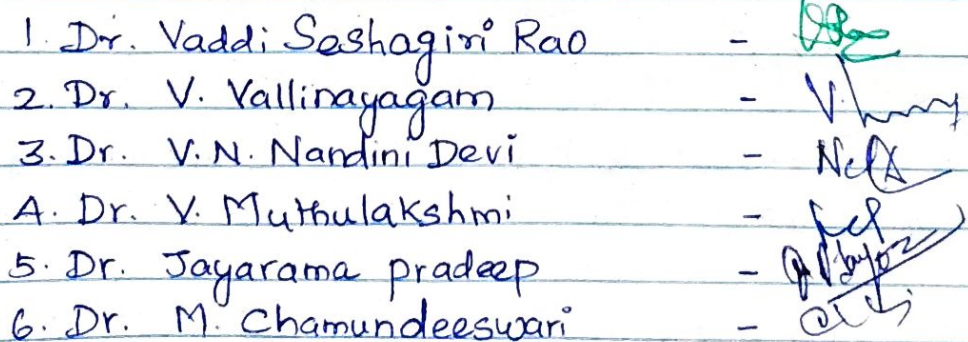 1. Dr. Vaddi Seshagiri Rao -
2. Dr. V. Vallinayagam -
3. Dr. V.N. Nandini Devi -
4. Dr. V. Muthulakshmi -
5. Dr. Jayarama pradeep -
6. Dr. M. Chamundeeswari -